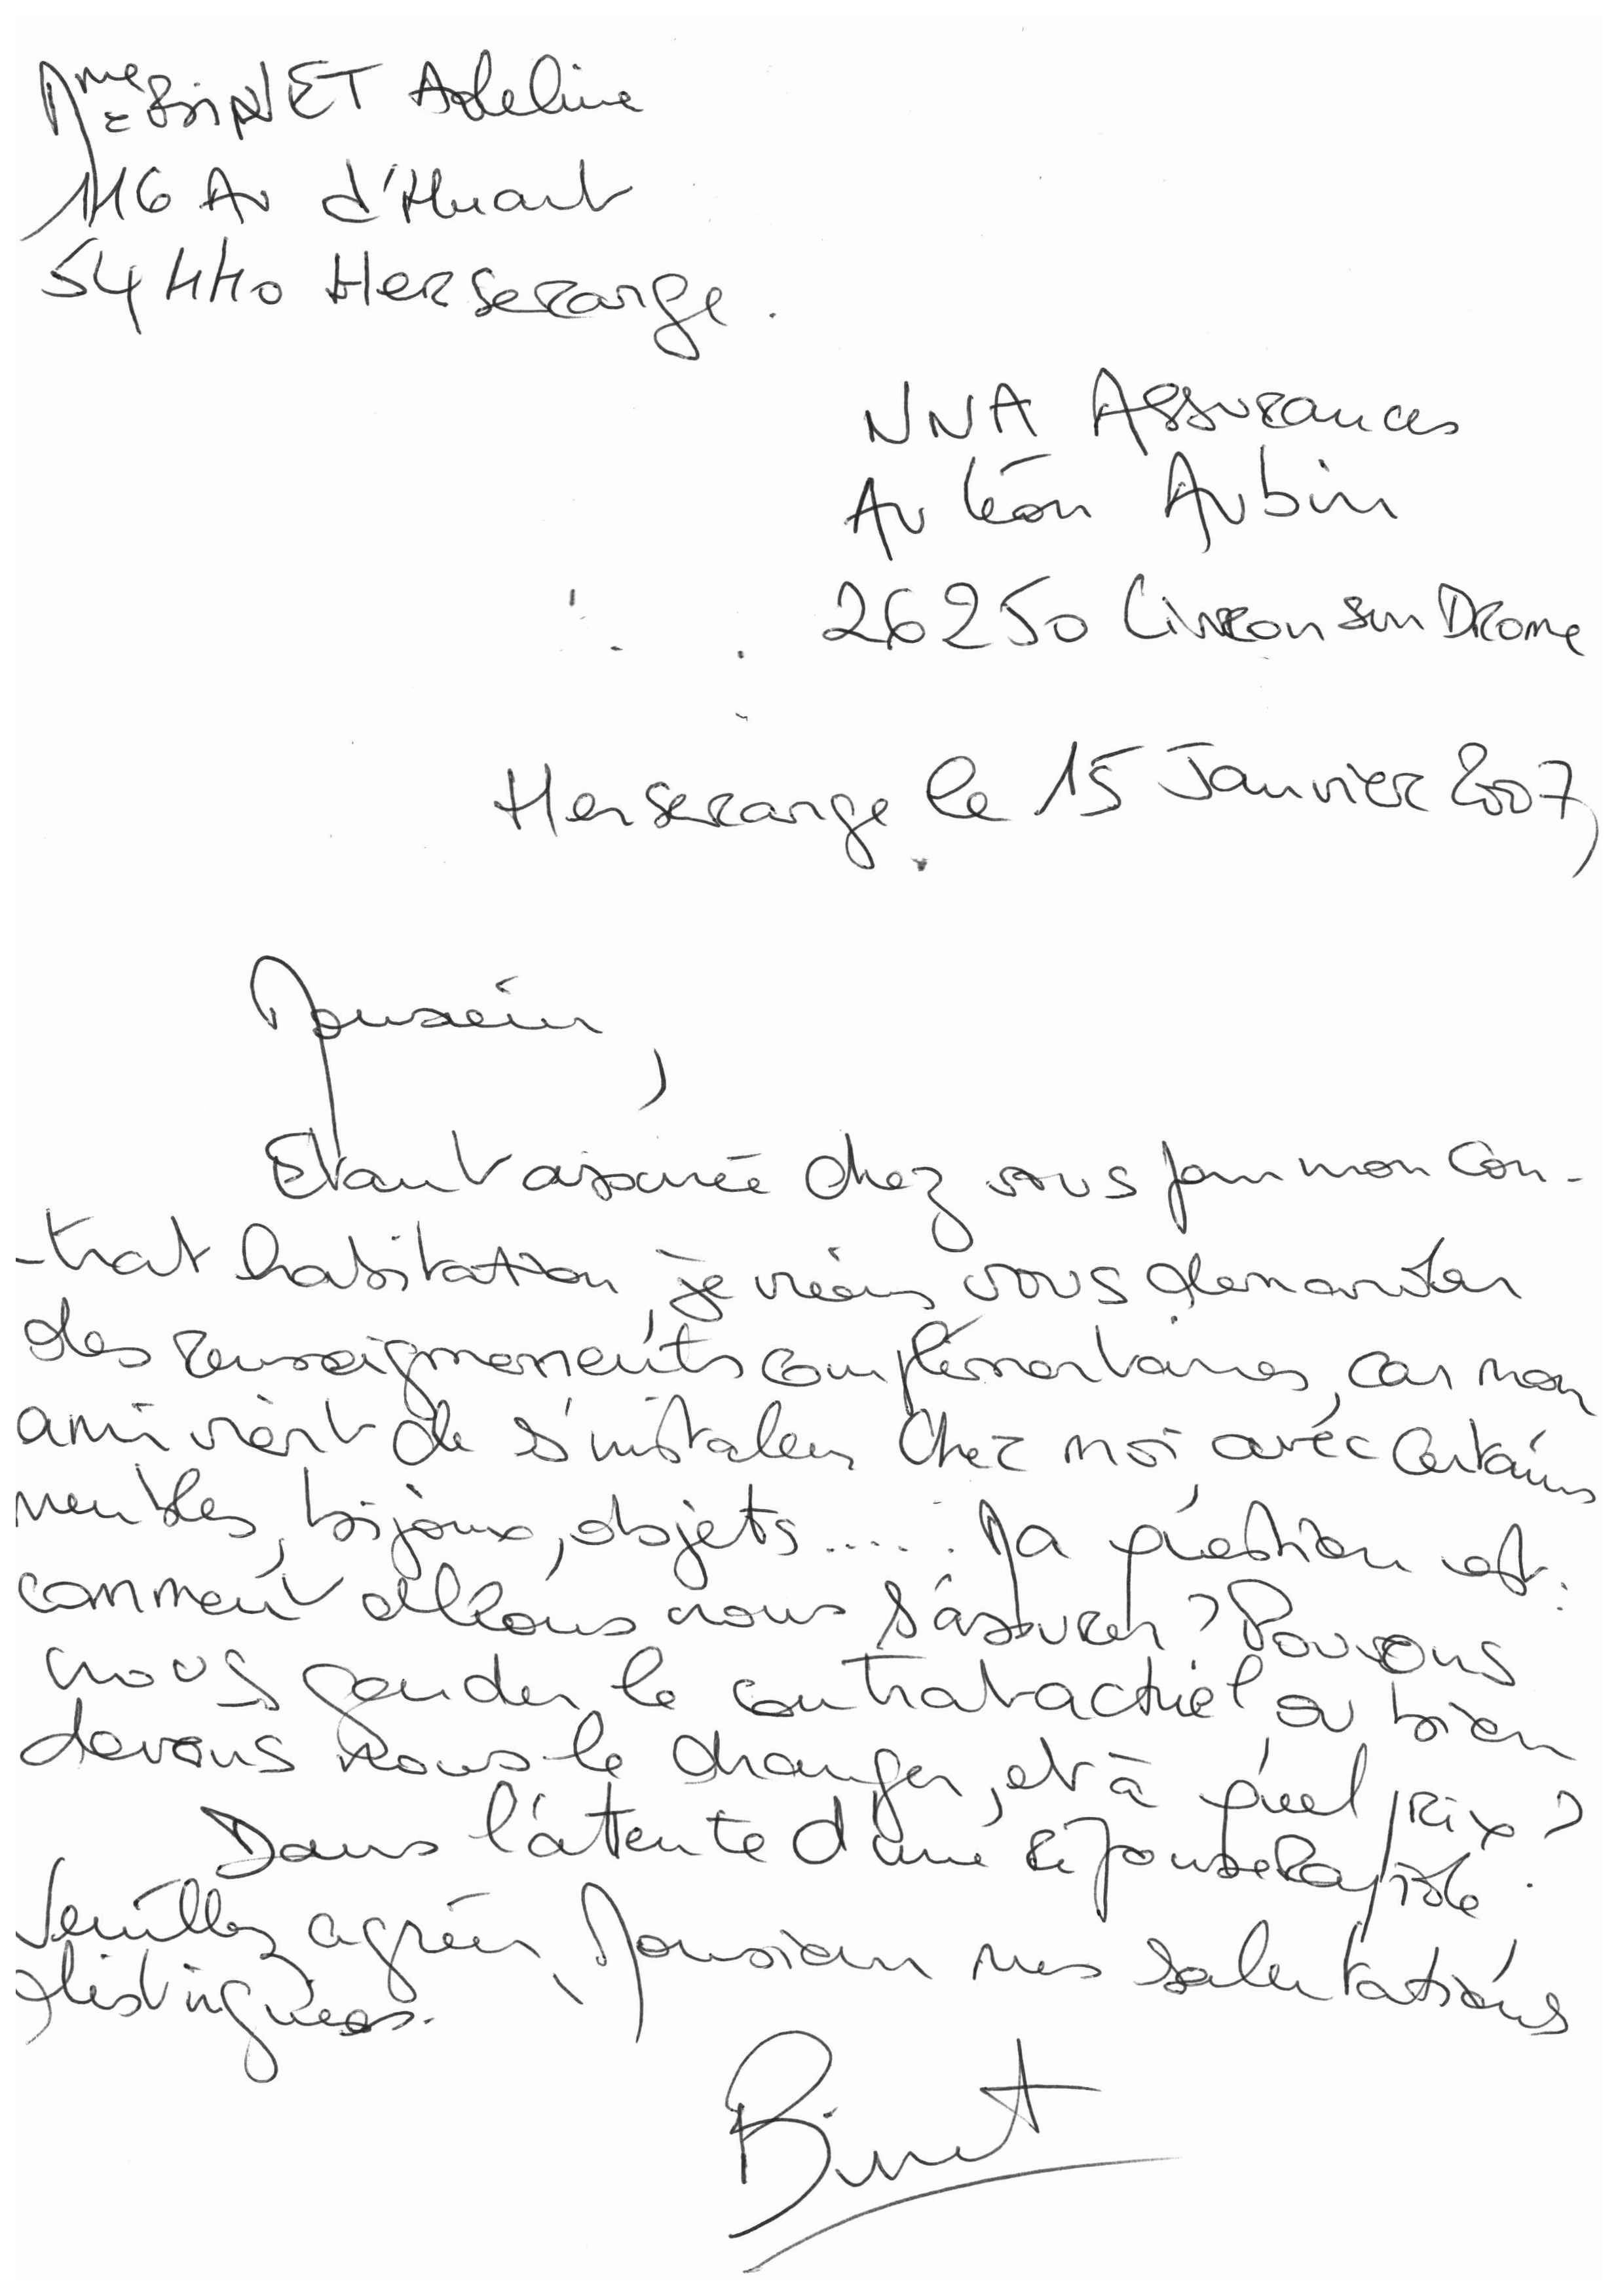 Mme BINET Adeline
116 Av d'Huart
54440 Herserange.
NNA Assurances
Av Léon Aubin
26250 Livron sur Drome
Herserange le 15 Janvier 2007,
Monsieur,
Etant assurée chez vous pour mon con-
-trat habitation, je viens vous demander
des renseignements complémentaires, car mon
ami vient de s'installer chez moi avec certains
meubles, bijoux, objets..... Ma question est:
comment allons nous s'assurer? Pouvons
nous garder le contrat actuel ou bien
devons nous le changer, et à quel prix?
Dans l'attente d'une réponse rapide.
Veuillez agréer, Monsieur mes salutations
distinguées.
Binet